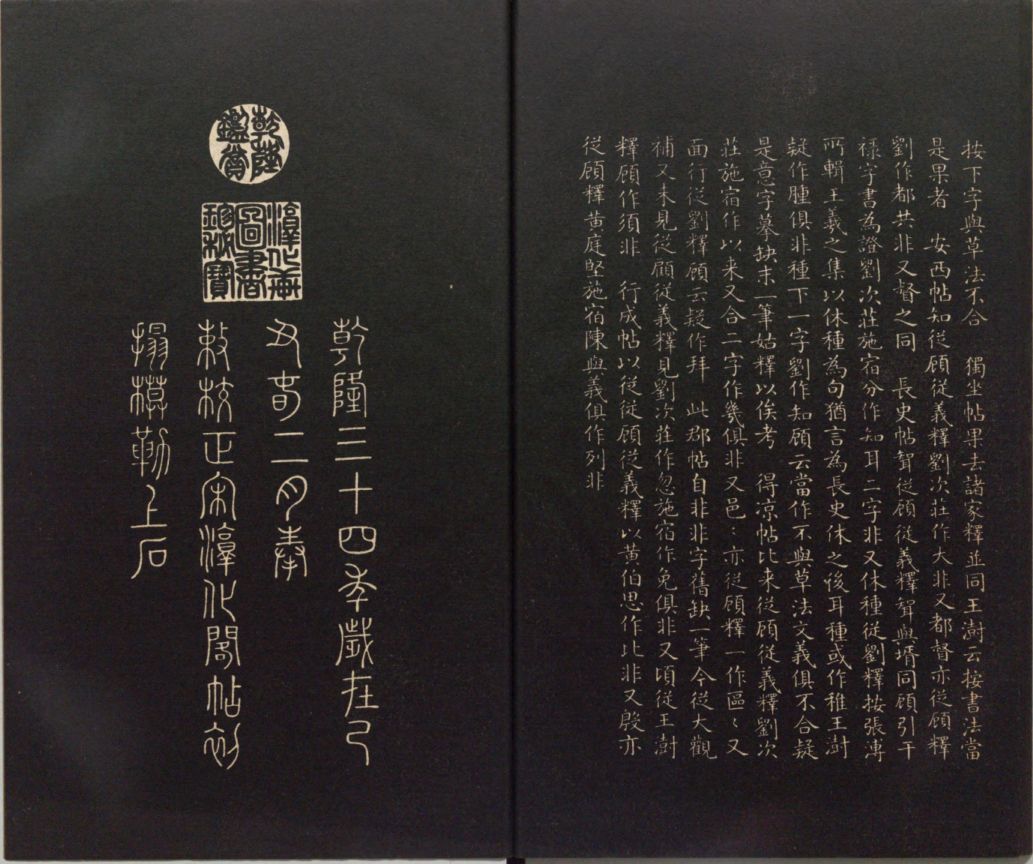 按下字與草法不合　獨坐帖果去諸家釋並同王澍云按書法當
是果者　安西帖知從顧從義釋劉次莊作大非又都督亦從顧釋
劉作都共非又督之同　長史帖聟從顧從義釋聟與壻同顧引干
祿字書為證劉次莊施宿分作知耳二字非又休種從劉釋按張溥
所輯王羲之集以休種為句猶言為長史休之後耳種或作稚王澍
疑作腫俱非種下一字劉作知顧云當作不與草法文義俱不合疑
是意字摹缺末一筆姑釋以俟考　得凉帖比来從顧從義釋劉次
莊施宿作以来又合一字作幾俱非又邑〻亦從顧釋一作區〻又
面行從劉釋顧云疑作拜　此郡帖自非非字舊缺一筆今從大觀
補又未見從顧從義釋見劉次莊作忽施宿作兔俱非又頃從王澍
釋顧作須非　行成帖以從從顧從義釋以黃伯思作比非又殷亦
從顧釋黃庭堅施宿陳與義俱作列非
乾隆鑑賞
淳化軒圖書珍秘寶
乾隆三十四年歲在己
丑春二月奉
敕校正宋淳化閣帖初
搨模勒上石